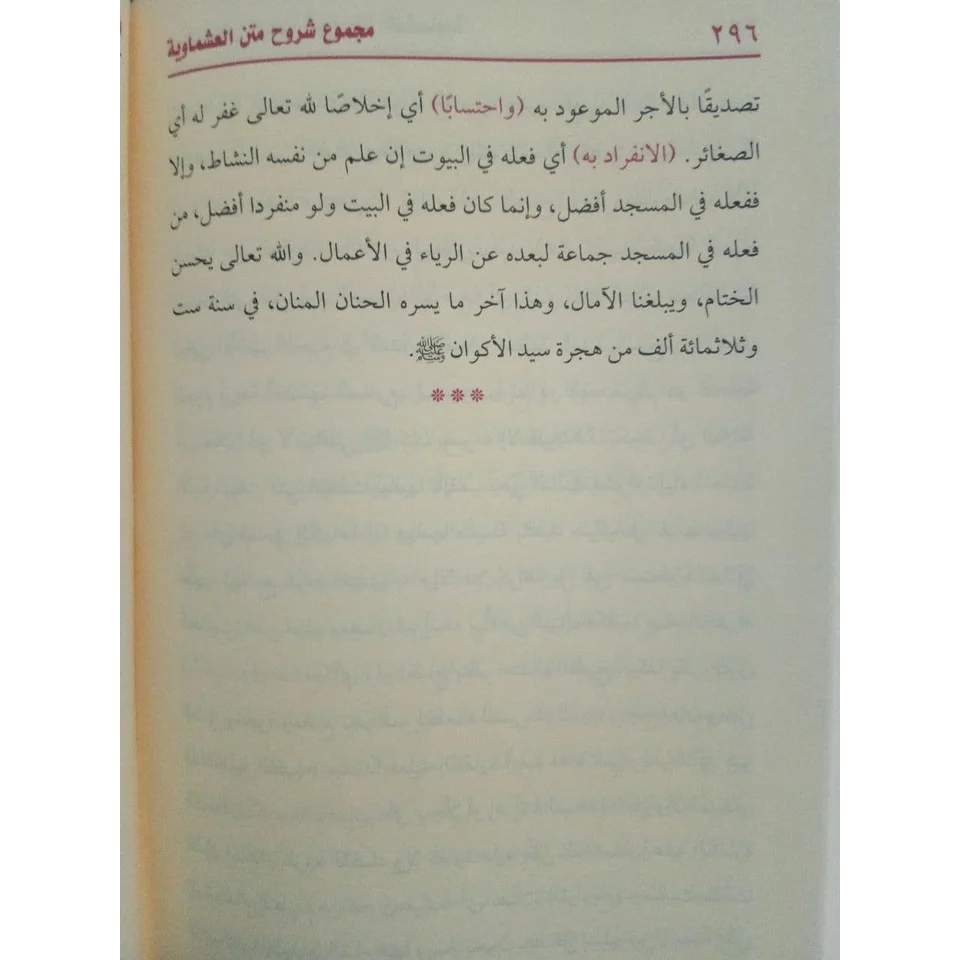 ٢٩٦ مجموع شروح متن العشماوية
تصديقًا بالأجر الموعود به (واحتسابًا) أي إخلاصًا لله تعالى غفر له أي
الصغائر. (الانفراد به) أي فعله في البيوت إن علم من نفسه النشاط، وإلا
ففعله في المسجد أفضل، وإنما كان فعله في البيت ولو منفردا أفضل، من
فعله في المسجد جماعة لبعده عن الرياء في الأعمال. والله تعالى يحسن
الختام، ويبلغنا الآمال، وهذا آخر ما يسره الحنان المنان، في سنة ست
وثلاثمائة ألف من هجرة سيد الأكوان ﷺ.
***